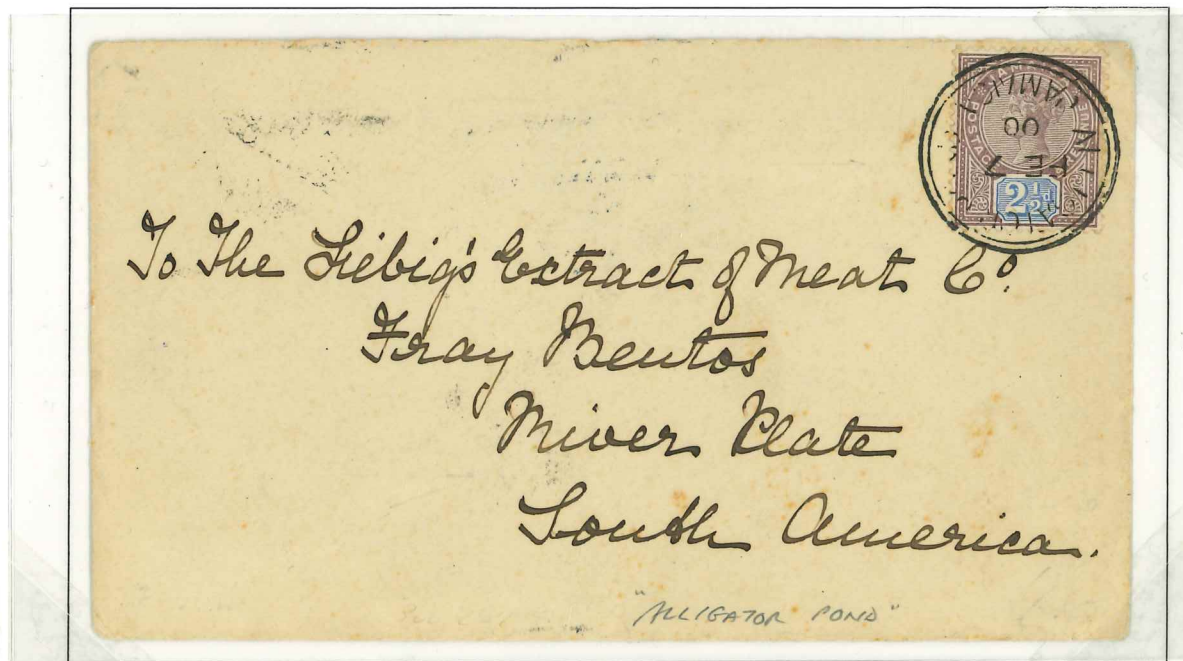 2½d
FE 7
00
To The Liebig's Extract of Meat Co.
Fray Bentos
River Plate
South America.
"ALLIGATOR POND"